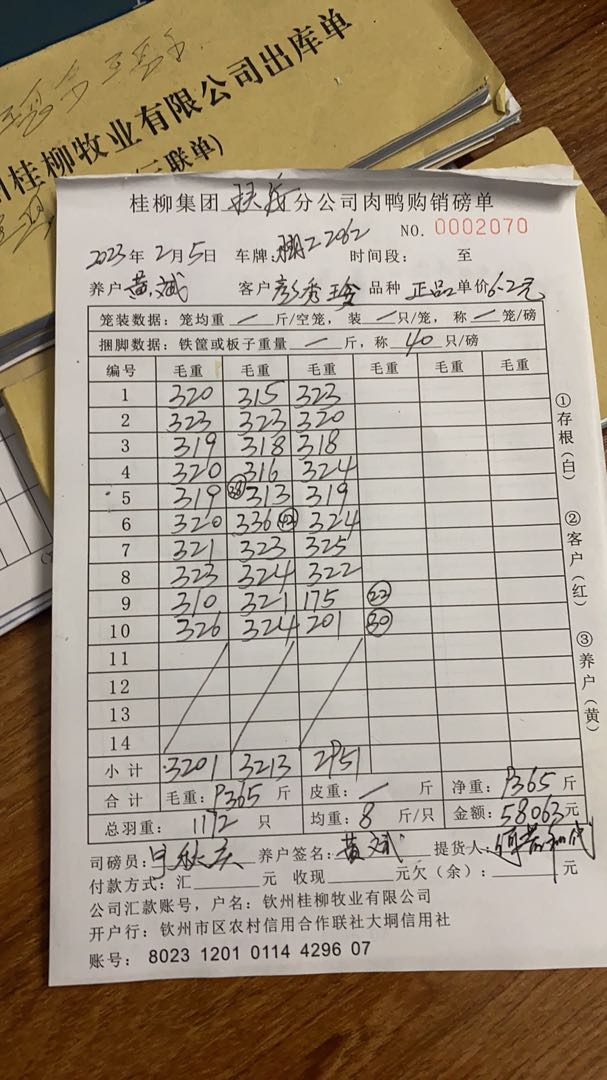 桂柳牧业有限公司出库单
联单)
桂柳集团 分公司肉鸭购销磅单
NO. 0002070
2023年2月5日 车牌: 2062 时间段: 至
养户 黄斌 客户 彭秀 品种 正品 单价 6.2元
笼装数据: 笼均重 — 斤/空笼, 装 — 只/笼, 称 — 笼/磅
捆脚数据: 铁筐或板子重量 — 斤, 称 40 只/磅
编号 毛重 毛重 毛重 毛重 毛重 毛重
1 320 315 323
2 323 323 320
3 319 318 318
4 320 316 324
5 319 313 319
6 320 336 324
7 321 323 325
8 323 324 322
9 310 321 175 22
10 326 324 201 30
11
12
13
14
小计 3201 3213 2951
合计 毛重: 9365 斤 皮重: — 斤 净重: 9365 斤
总羽重: 1172 只 均重: 8 斤/只 金额: 58063元
司磅员: 养户签名: 黄斌 提货人:
付款方式: 汇 元 收现 元欠(余): 元
公司汇款账号, 户名: 钦州桂柳牧业有限公司
开户行: 钦州市区农村信用合作联社大垌信用社
账号: 8023 1201 0114 4296 07
①存根(白)
②客户(红)
③养户(黄)